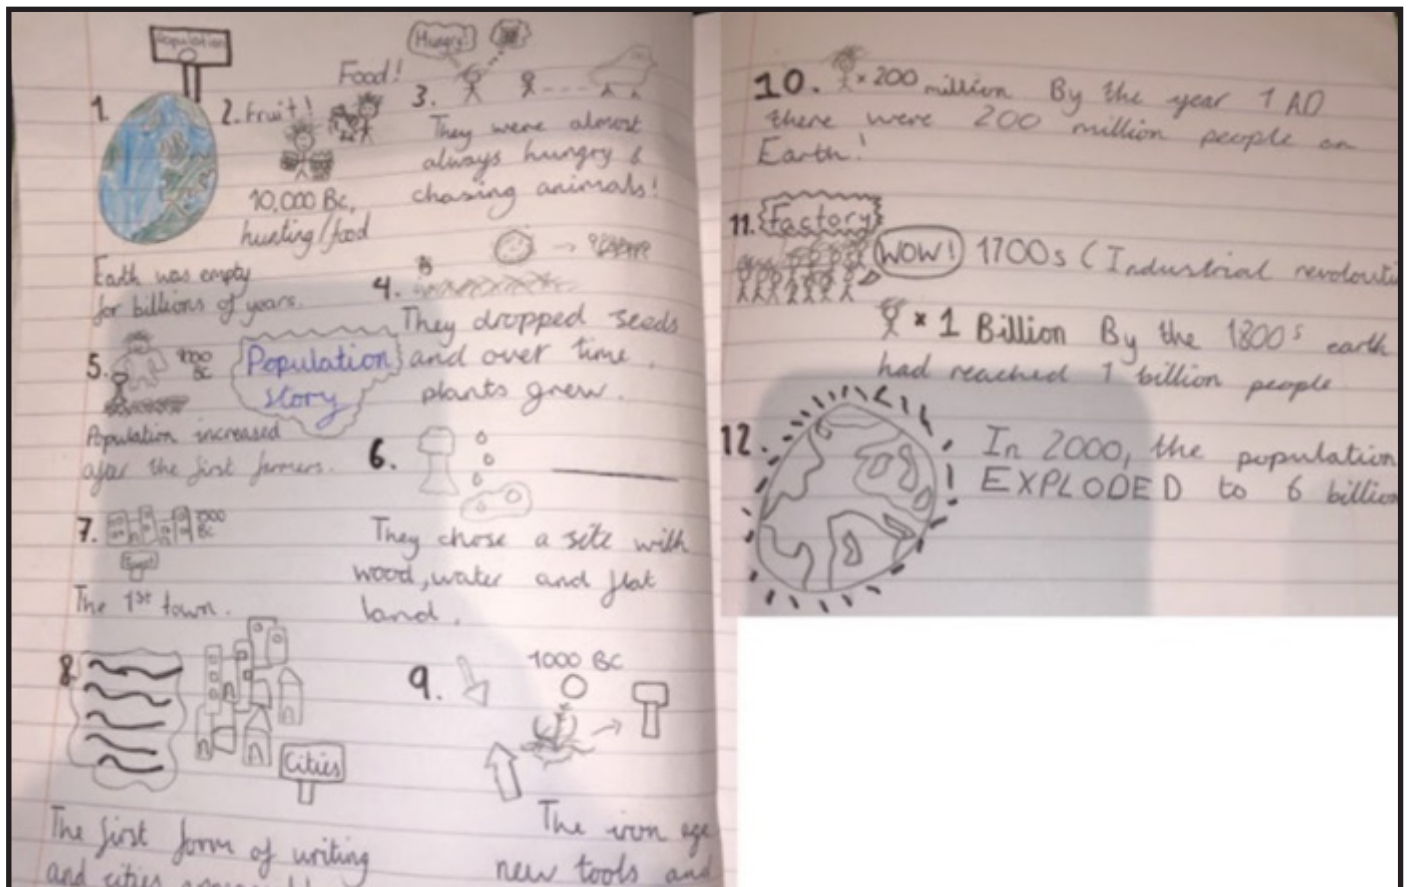 Population
1.
Earth was empty
for billions of years.
2. Fruit!
Food!
10,000 BC,
hunting/food
Hungry!
3.
They were almost
always hungry &
chasing animals!
4.
They dropped seeds
and over time,
plants grew.
Population
story
5.
BC
Population increased
after the first farmers.
6.
They chose a site with
wood, water and flat
land.
7.
BC
The 1st town.
8.
Cities
The first form of writing
and cities
9.
1000 BC
The iron age
new tools and
10. × 200 million By the year 1 AD
there were 200 million people on
Earth!
11. Factory
WOW! 1700s (Industrial revolouti
× 1 Billion By the 1800s earth
had reached 1 billion people
12.
In 2000, the population
EXPLODED to 6 billion